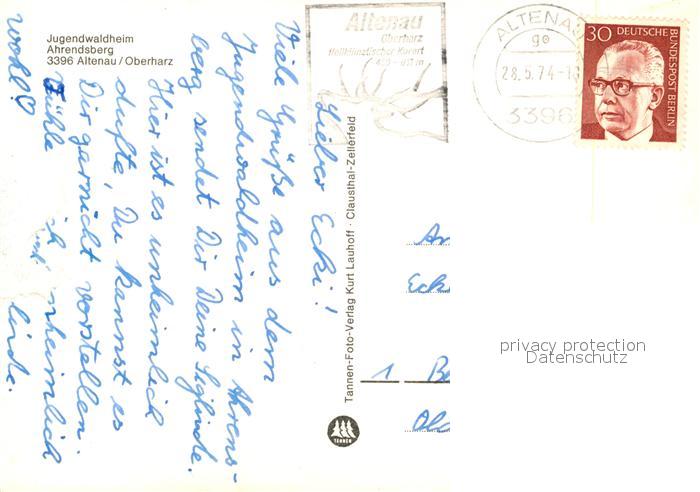 Jugendwaldheim
Ahrendsberg
3396 Altenau/Oberharz
Altenau
Oberharz
Heilklimatischer Kurort
ALTENAU
go
28.5.74-1
3396
30 DEUTSCHE
BUNDESPOST BERLIN
Lieber Ecki!
Viele Grüße aus dem
Jugendwaldheim in Ahrens-
berg sendet Dir Deine Seglinde.
Hier ist es unheimlich
dufte, Du kannst es
Dir garnicht vorstellen.
Fühle ich unheimlich
wohl!
Tannen-Foto-Verlag Kurt Lauhoff · Clausthal-Zellerfeld
TANNEN
An
Eck
1 Be
privacy protection
Datenschutz